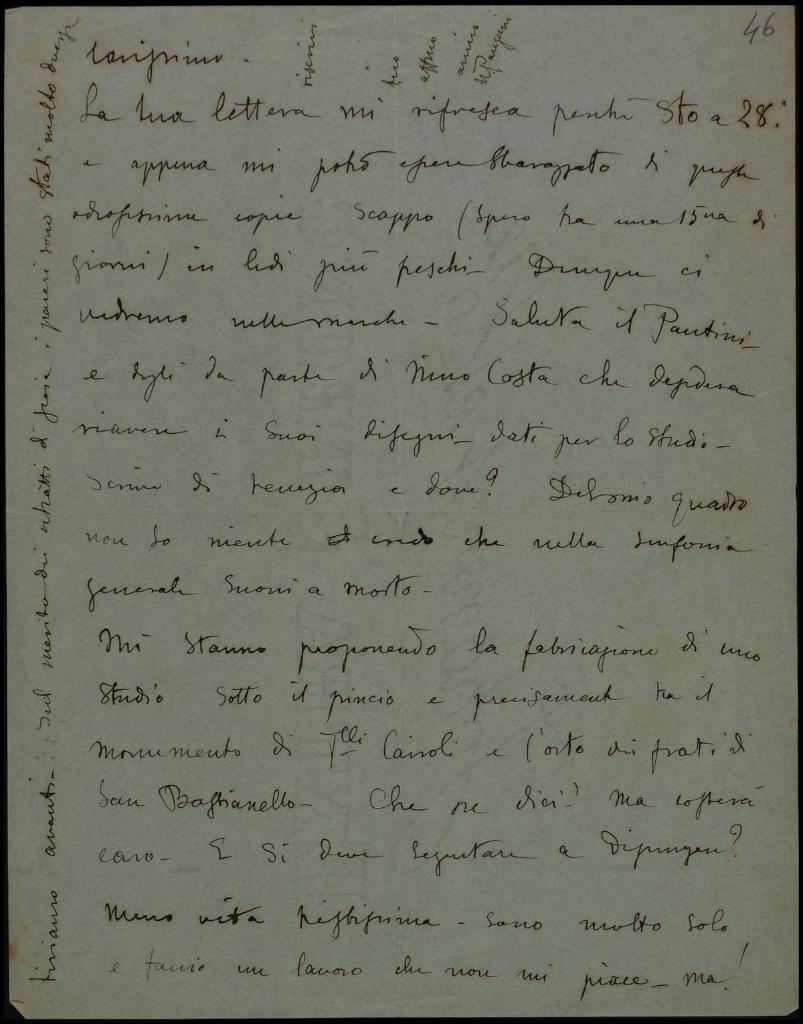 46
Carissimo -
La tua lettera mi rifresca perchè sto a 28°
e appena mi potrò essere sbarazzato di queste
odiosissime copie scappo (spero tra una 15na di
giorni) in lidi più freschi - Dunque ci
vedremo nelle marche - Saluta il Pantini -
e digli da parte di Nino Costa che desidera
riavere i suoi disegni - dati per lo studio -
Scrive di Venezia e dove? Del mio quadro
non so niente credo che nella sinfonia
generale suoni a morto -
Mi stanno proponendo la fabricazione di uno
studio sotto il pincio e precisamente tra il
monumento di Flli Cairoli e l'orto dei frati di
San Bastianello - Che ne dici? Ma costerà
caro - E si deve seguitare a dipingere?
Meno vita pessissima - sono molto solo
e faccio un lavoro che non mi piace - ma!
tiriamo avanti - sul merito dei ritratti di i pareri sono stati molto
tuo
affmo
amico